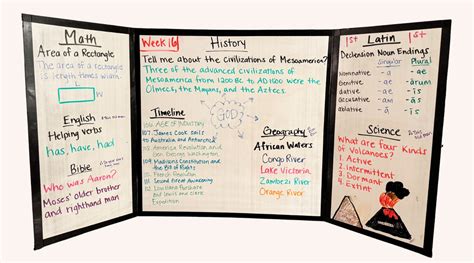 Math
Area of a Rectangle
The area of a rectangle
is length times width.
L
W
English
Helping verbs
has, have, had
Bible
Who was Aaron?
Moses' older brother
and righthand man
Week 16
History
Tell me about the Civilizations of Mesoamerica?
Three of the advanced civilizations of
Mesoamerica from 1200 BC to AD1500 were the
Olmecs, the Mayans, and the Aztecs.
Timeline
106. AGE OF INDUSTRY
107. James Cook sails
to Australia and Antarctica
America Revolution and
Gen. George Washington
109. Madison's Constitution and
the Bill of Rights
French Revolution
Second Great Awakening
Louisiana Purchase
and Lewis and Clark
GOD
Geography
African Waters
Congo River
Lake Victoria
Zambezi River
Orange River
1st
Latin
1st
Declension Noun Endings
Singular
Plural
Nominative
- a
- ae
- ae
- ārum
dative
- ae
- īs
accusative
- am
- ās
ablative
- ā
- īs
Science
What are four Kinds
of Volcanoes?
1. Active
2. Intermittent
3. Dormant
4. Extint